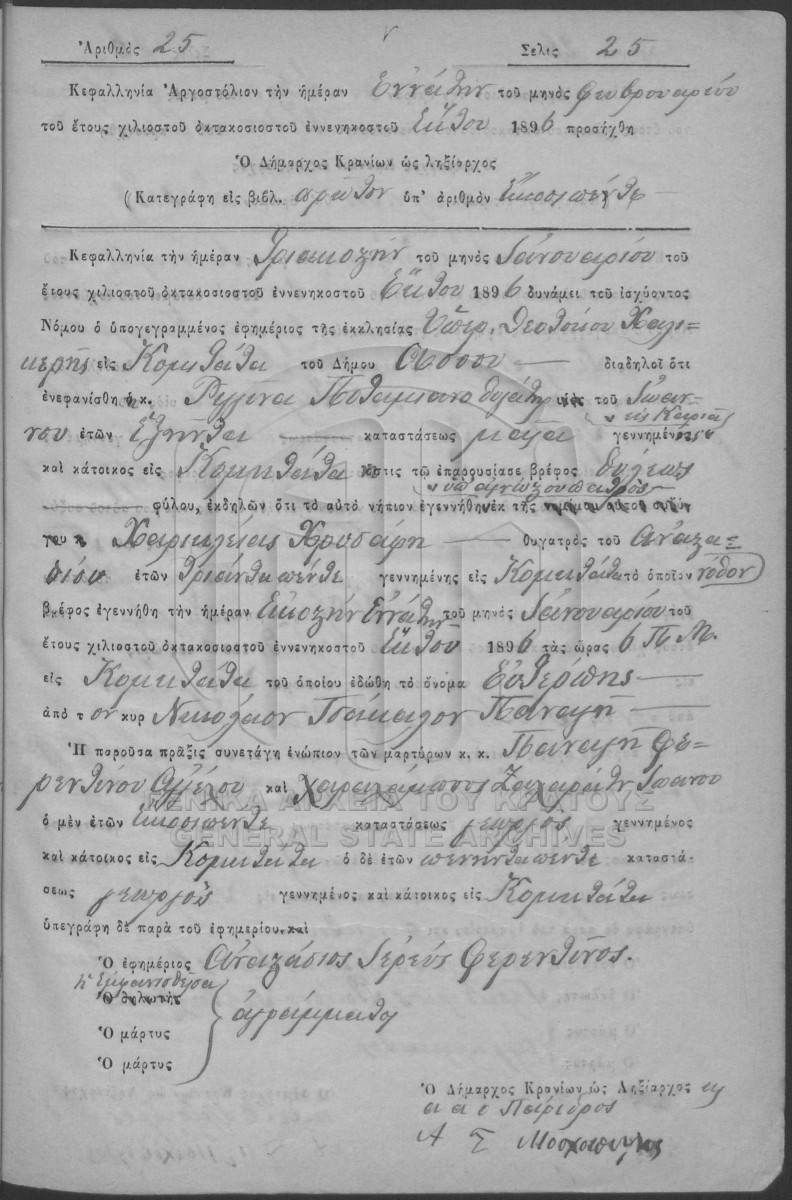 Ἀριθμὸς 25 Σελὶς 25
Κεφαλληνία Ἀργοστόλιον τὴν ἡμέραν Ἐννάτην τοῦ μηνὸς Φεβρουαρίου
τοῦ ἔτους χιλιοστοῦ ὀκτακοσιοστοῦ ἐννενηκοστοῦ Ἕκτου 1896 προσήχθη
Ὁ Δήμαρχος Κρανίων ὡς ληξίαρχος
(Κατεγράφη εἰς βιβλ. πρῶτον ὑπ' ἀριθμὸν Εἴκοσι πέντε
Κεφαλληνία τὴν ἡμέραν Τριακοστὴν τοῦ μηνὸς Ἰανουαρίου τοῦ
ἔτους χιλιοστοῦ ὀκτακοσιοστοῦ ἐννενηκοστοῦ Ἕκτου 1896 δυνάμει τοῦ ἰσχύοντος
Νόμου ὁ ὑπογεγραμμένος ἐφημέριος τῆς ἐκκλησίας Ὑπερ. Θεοτόκου Χαλι-
κερῆς εἰς Κομητάτα τοῦ Δήμου Ἄσσου διαδηλοῖ ὅτι
ἐνεφανίσθη ἡ κ. Ρεγγίνα Ποταμιάνου θυγάτηρ τοῦ Ἰωάν-
νου ἐτῶν Ἑξῆντα καταστάσεως μαῖα γεννημένη εἰς Καριὰ
καὶ κάτοικος εἰς Κομητάτα ἥτις τῷ ἐπαρουσίασε βρέφος θήλεως
φύλου, ἐκδηλῶν ὅτι τὸ αὐτὸ νήπιον ἐγεννήθη ὑπ' ἀγνώστου πατρὸς ἐκ τῆς
Χαρικλείας Χρυσάφη θυγατρὸς τοῦ Ἀναστα-
σίου ἐτῶν τριάντα πέντε γεννημένης εἰς Κομητάτα τὸ ὁποῖον νόθον
βρέφος ἐγεννήθη τὴν ἡμέραν Εἰκοστὴν Ἐννάτην τοῦ μηνὸς Ἰανουαρίου τοῦ
ἔτους χιλιοστοῦ ὀκτακοσιοστοῦ ἐννενηκοστοῦ Ἕκτου 1896 τὰς ὥρας 6 Π.Μ.
εἰς Κομητάτα τοῦ ὁποίου ἐδώθη τὸ ὄνομα Εὐτέρπης
ἀπὸ τον κυρ Νικόλαον Τσάκαλον Παναγῆ
Ἡ παροῦσα πρᾶξις συνετάγη ἐνώπιον τῶν μαρτύρων κ. κ. Παναγῆ Φε-
ρεντίνου Ἀγγέλου καὶ Χαράλαμπος Ζαχαράτη Ἰωάννου
ὁ μὲν ἐτῶν Εἴκοσι πέντε καταστάσεως γεωργὸς γεννημένος
καὶ κάτοικος εἰς Κομητάτα ὁ δὲ ἐτῶν πενῆντα πέντε καταστά-
σεως γεωργὸς γεννημένος καὶ κάτοικος εἰς Κομητάτα
ὑπεγράφη δὲ παρὰ τοῦ ἐφημερίου καὶ
Ὁ ἐφημέριος Ἀναστάσιος Ἱερεὺς Φερεντῖνος.
Ἡ Ἐμφανισθεῖσα
Ὁ δηλωτὴς
Ὁ μάρτυς ἀγράμματοι
Ὁ μάρτυς
Ὁ Δήμαρχος Κρανίων ὡς Ληξίαρχος
α α ὁ Πάρεδρος
Α Σ Μοσχόπουλος
ΓΕΝΙΚΑ ΑΡΧΕΙΑ ΤΟΥ ΚΡΑΤΟΥΣ
GENERAL STATE ARCHIVES